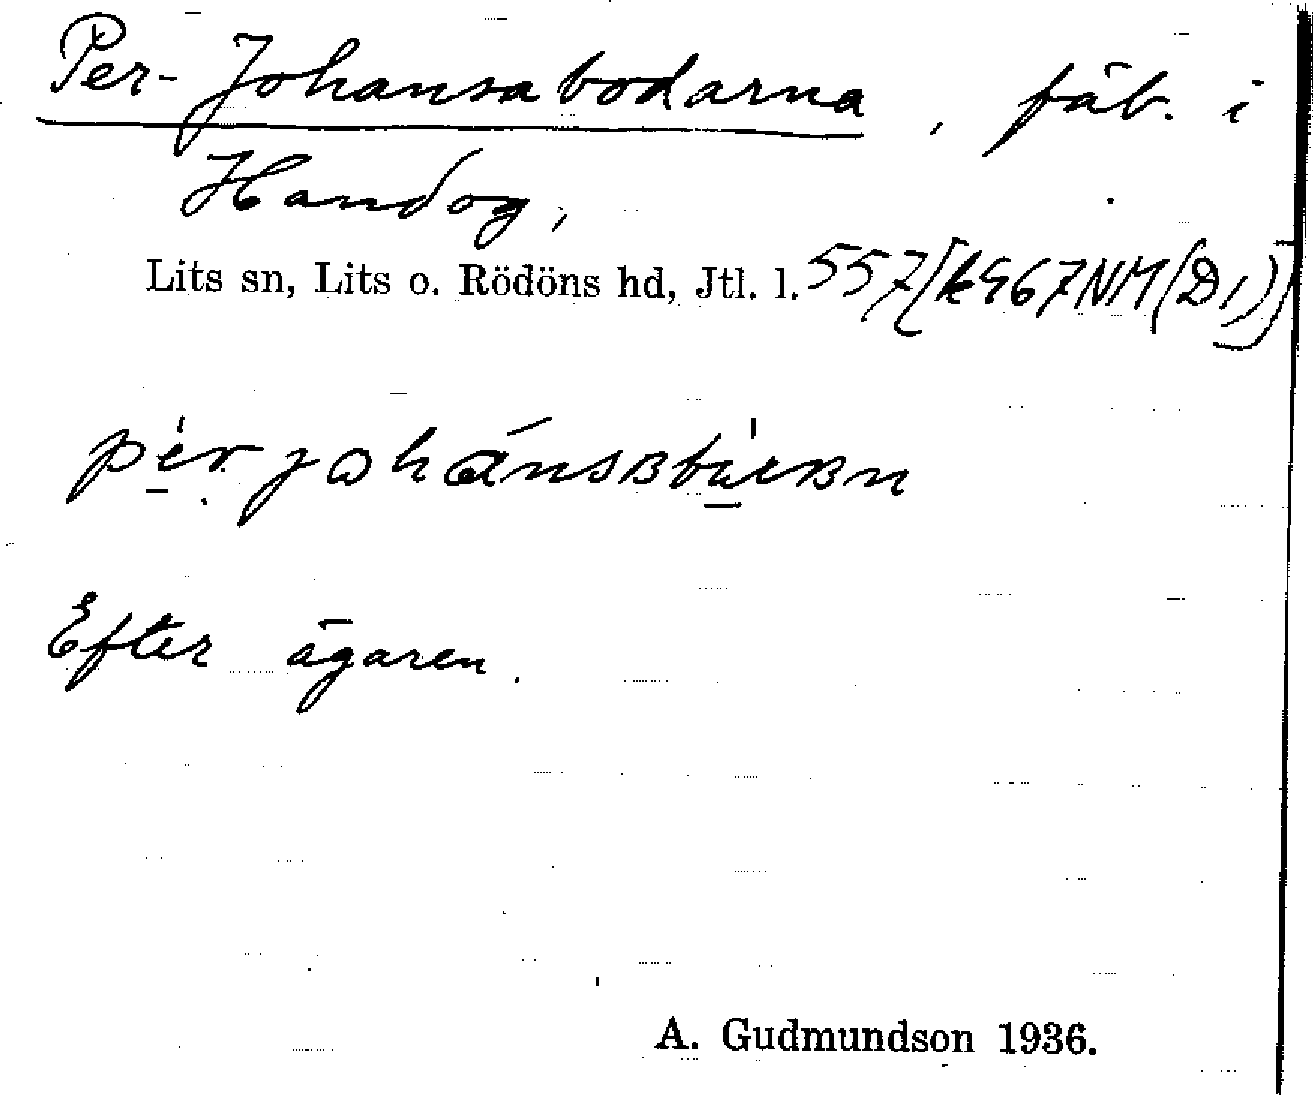 Per-Johansabodarna, fäb. i
Handog,
Lits sn, Lits o. Rödöns hd, Jtl. l. 557[k967NM(D1)]
Efter ägaren.
A. Gudmundson 1936.